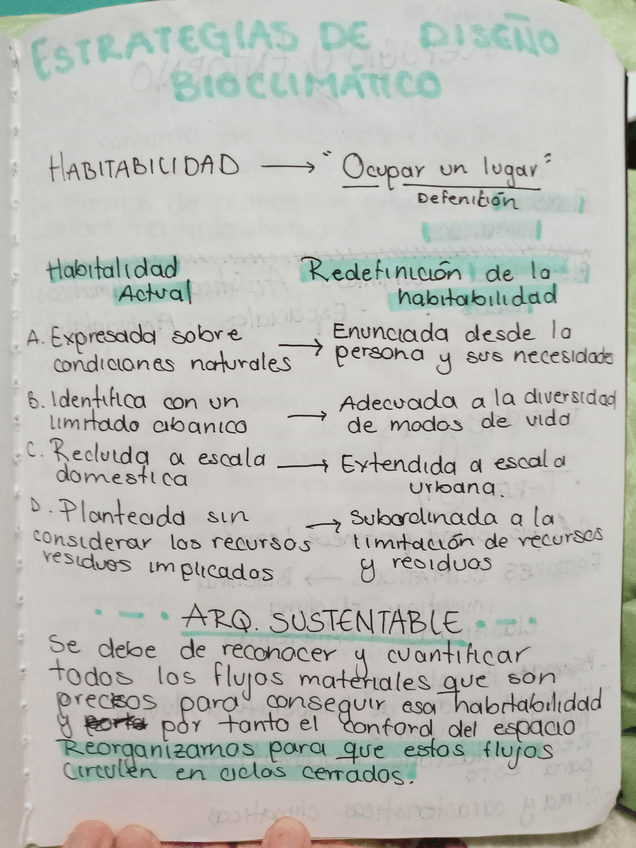 ESTRATEGIAS DE DISEÑO
BIOCLIMÁTICO
HABITABILIDAD → "Ocupar un lugar"
Defenitión
Habitalidad
Actual
Redefinición de la
habitabilidad
A. Expresada sobre
condiciones naturales
→ Enunciada desde la
persona y sus necesidades
B. Identifica con un
limitado abanico
→ Adecuada a la diversidad
de modos de vida
C. Recluida a escala
domestica
→ Extendida a escala
urbana.
D. Planteada sin
considerar los recursos
residuos implicados
→ Subordinada a la
limitación de recursos
y residuos
ARQ. SUSTENTABLE
Se debe de reconocer y cuantificar
todos los flujos materiales que son
precisos para conseguir esa habitabilidad
y por tanto el conford del espacio
Reorganizarnos para que estos flujos
circulen en ciclos cerrados.